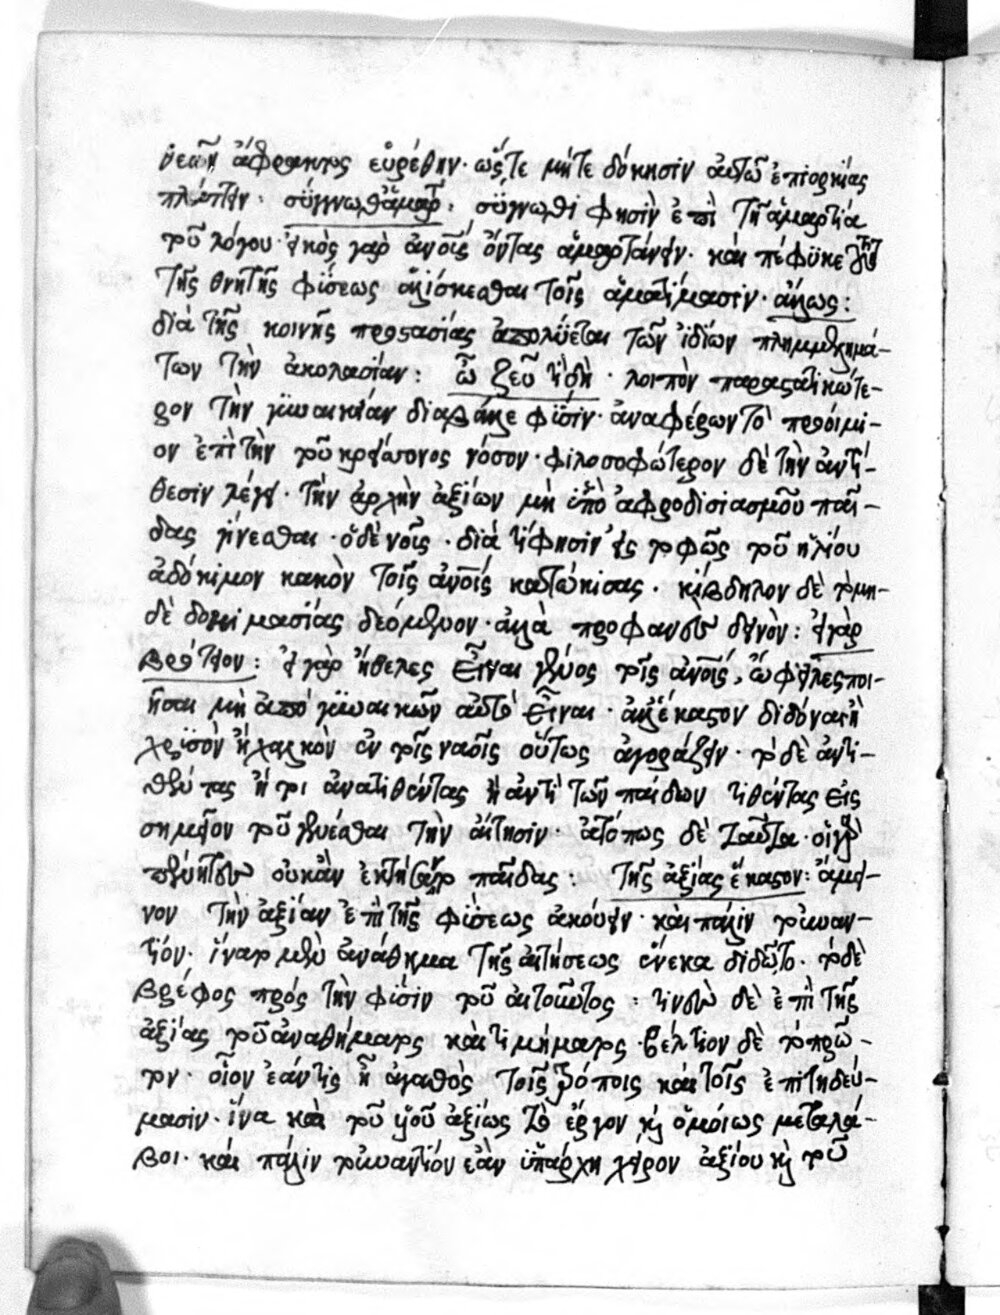 θεῶν ἄφρακτος εὑρέθην· ὥστε μήτε δόκησιν αὐτῷ ἐπιορκίας
σύγγνωθ' ἁμαρτ: σύγνωθι φησὶν ἐπὶ τῇ ἁμαρτία
τοῦ λόγου· εἰκὸς γὰρ ἀνοῖς ὄντας ἁμαρτάνειν· καὶ πέφυκε
τῆς θνητῆς φύσεως ἁλίσκεσθαι τοῖς ἁμαρτήμασιν· ἄλλως:
διὰ τῆς κοινῆς προστασίας ἀπολύεται τῶν ἰδίων πλημμελημά-
των τὴν ἀκολασίαν: ὦ ζεῦ τί δὴ· λοιπὸν παραστατικώτε-
ρον τὴν γυναικείαν διαβάλλει φύσιν· ἀναφέρων τὸ προοίμι-
ον ἐπὶ τὴν τοῦ κρείττονος νόσον· φιλοσοφώτερον δὲ τὴν ἀντί-
θεσιν λέγει· τὴν ἀρχὴν ἀξίων μὴ ὑπὸ ἀφροδισιασμοῦ παῖ-
δας γίνεσθαι· ὁ δὲ νοῦς· διὰ τί φησὶν εἰς τὸ φῶς τοῦ ἡλίου
ἀδόκιμον κακὸν τοῖς ἀνοῖς κατῴκισας· κίβδηλον δὲ τὸ μη-
δὲ δοκιμασίας δεόμενον· ἀλλὰ προφανῶς δεινὸν: εἰ γὰρ
βρότειον: εἰ γὰρ ἤθελες εἶναι γένος τοῖς ἀνοῖς, ὤφειλες ποι-
ῆσαι μὴ ἀπὸ γυναικῶν αὐτὸ εἶναι· ἀλλ' ἕκαστον διδόναι ἢ
χρυσὸν ἢ χαλκὸν ἐν τοῖς ναοῖς οὕτως ἀγοράζειν· τὸ δὲ ἀντι-
θέντας ἤτοι ἀνατιθέντας ἢ ἀντὶ τῶν παίδων τιθέντας εἰς
σημεῖον τοῦ γενέσθαι τὴν αἴτησιν· ἀτόπως δὲ ταῦτα· οἱ γὰρ
πένητες οὐκ ἂν ἐκτήσαντο παῖδας: τῆς ἀξίας ἕκαστον: ἄμει-
νον τὴν ἀξίαν ἐπὶ τῆς φύσεως ἀκούειν· καὶ πάλιν τοὐναν-
τίον· ἵνα τὸ μὲν ἀνάθημα τῆς αἰτήσεως ἕνεκα διδῶτο· τὸ δὲ
βρέφος πρὸς τὴν φύσιν τοῦ αἰτοῦντος: τινὲς δὲ ἐπὶ τῆς
ἀξίας τοῦ ἀναθήματος καὶ τιμήματος· βέλτιον δὲ τὸ πρῶ-
τον· οἷον ἐάν τις ᾖ ἀγαθὸς τοῖς τρόποις καὶ τοῖς ἐπιτηδεύ-
μασιν· ἵνα καὶ τοῦ υἱοῦ ἀξίως τὸ ἔργον κ ὁμοίως μεταλά-
βοι· καὶ πάλιν τοὐναντίον ἐὰν ὑπάρχη χεῖρον ἀξίου κ τοῦ